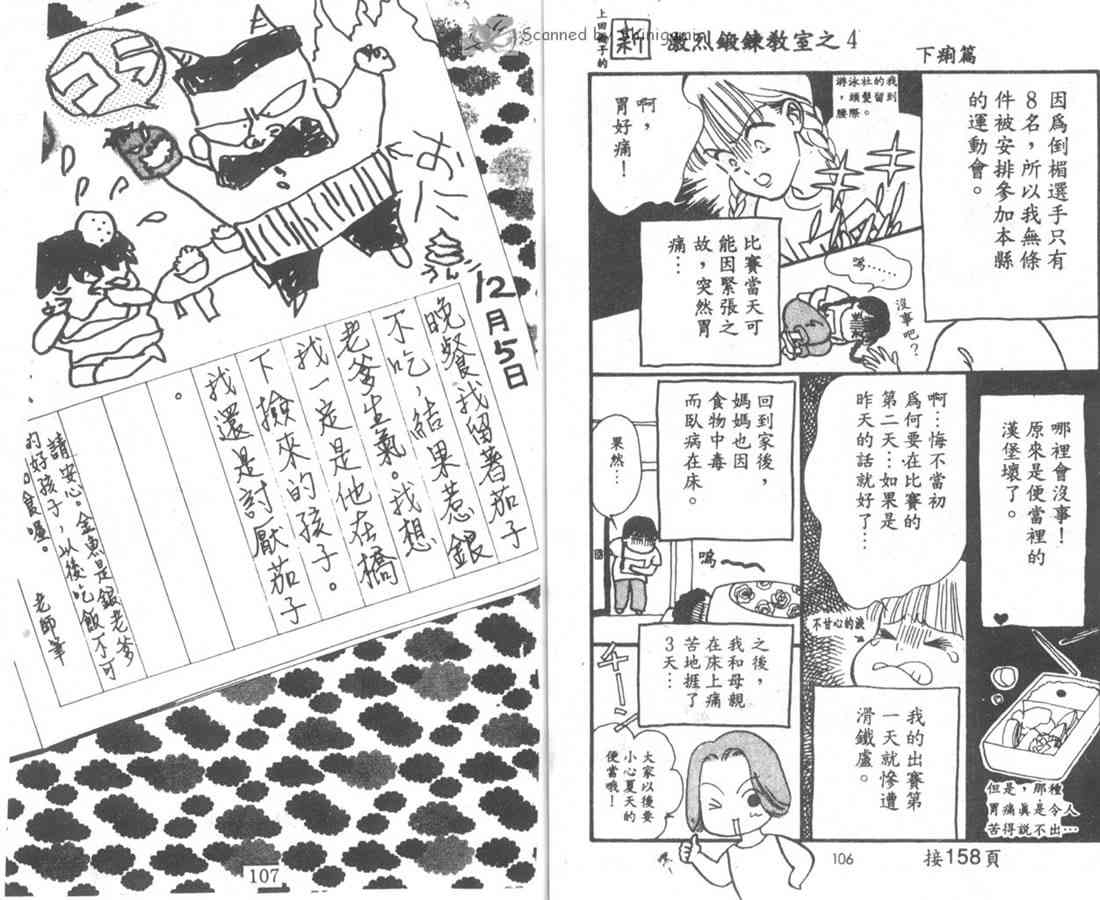 Scanned by Shinigami
上田倫子的
新
激烈鍛鍊教室之4
下痢篇
因為倒楣選手只有
8名，所以我無條
件被安排參加本縣
的運動會。
游泳社的我
，頭髮留到
腰際。
啊，
胃好痛！
比賽當天可
能因緊張之
故，突然胃
痛…
嗚……
沒事吧？
哪裡會沒事！
原來是便當裡的
漢堡壞了。
但是，那種
胃痛真是令人
苦得說不出…
啊…悔不當初
為何要在比賽的
第二天…如果是
昨天的話就好了…
不甘心的淚
我的出賽第
一天就慘遭
滑鐵盧。
回到家後，
媽媽也因
食物中毒
而臥病在床。
果然…
嗚～
之後，
我和母親
在床上痛
苦地捱了
3天…
大家以後要
小心夏天的
便當哦！
106
接158頁
コラ
おに
うんこ
12月5日
晚餐我留著茄子
不吃，結果惹銀
老爹生氣。我想
我一定是他在橋
下撿來的孩子。
我還是討厭茄子
。
請安心。金魚是銀老爹
的好孩子，以後吃飯不可
老師筆
107